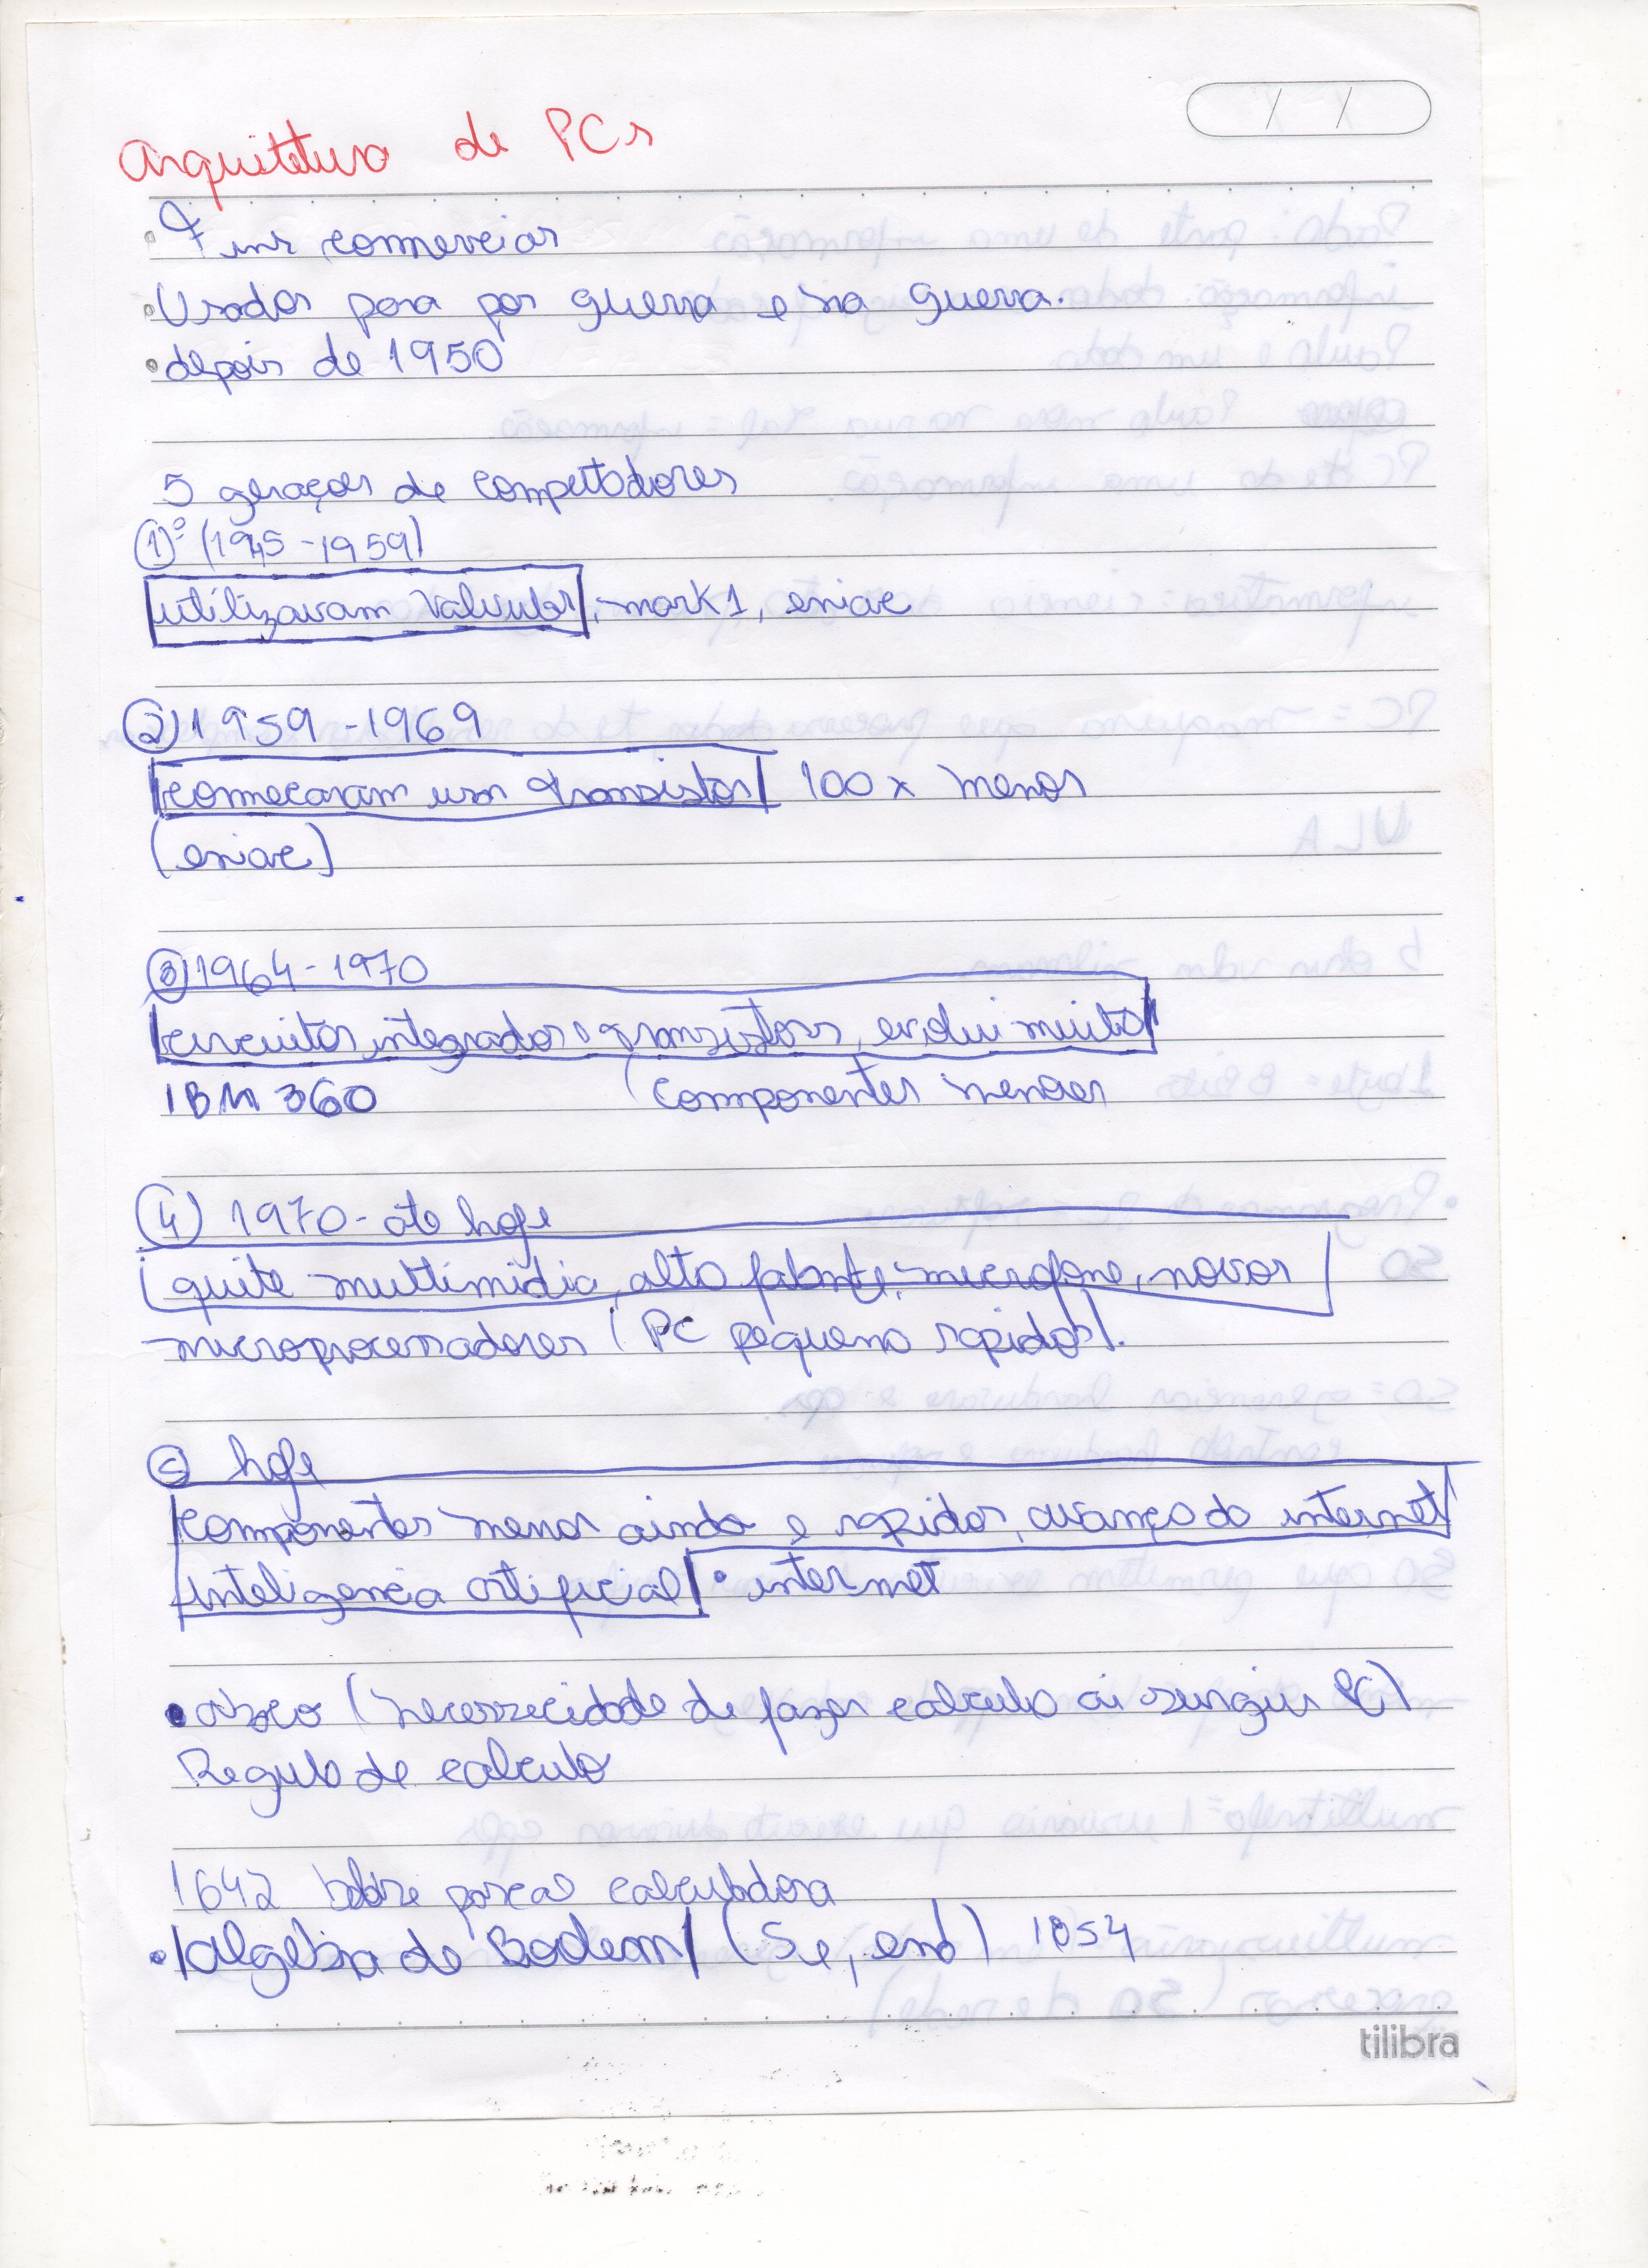 Arquitetura de PCs
• Fins comerciais
• Usados para pos guerra e na guerra.
• depois de 1950
5 gerações de computadores
1º (1945-1959)
utilizavam valvulas, mark1, eniac
2) 1959-1969
começaram usar transistor 100x menos
(eniac)
3) 1964-1970
circuitos integrados e transistors, evolui muito
IBM 360 (componentes menores
4) 1970-ate hoje
quite multimidia, alto falante, microfone, novos
microprocessadores (PC pequeno rapidos).
5 hoje
componentes menor ainda e rapidos, avanço do internet
inteligencia artificial • internet
• abaco (necessecidade de fazer calculo ai surgiu PC)
Regula de calculo
1642 pascal calculadora
• algebra de Boolean (Se, end) 1854
tilibra